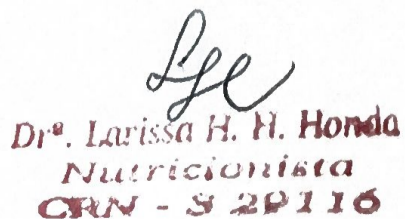 Drª. Larissa H. H. Honda
Nutricionista
CRN - 3 29116